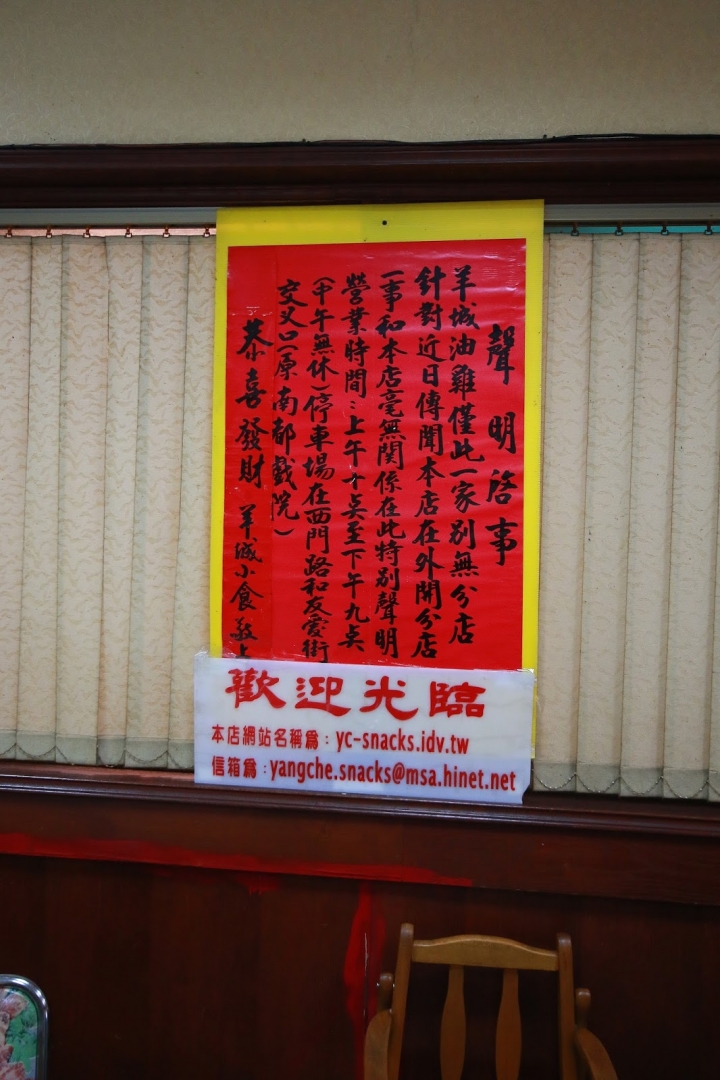 聲明啓事
羊城油雞僅此一家別無分店
針對近日傳聞本店在外開分店
一事和本店毫無關係在此特別聲明
營業時間：上午十点至下午九点
（甲午無休）停車場在西門路和友愛街
交叉口（原南都戲院）
恭喜發財 羊城小食敬上
歡迎光臨
本店網站名稱為：yc-snacks.idv.tw
信箱為：yangche.snacks@msa.hinet.net